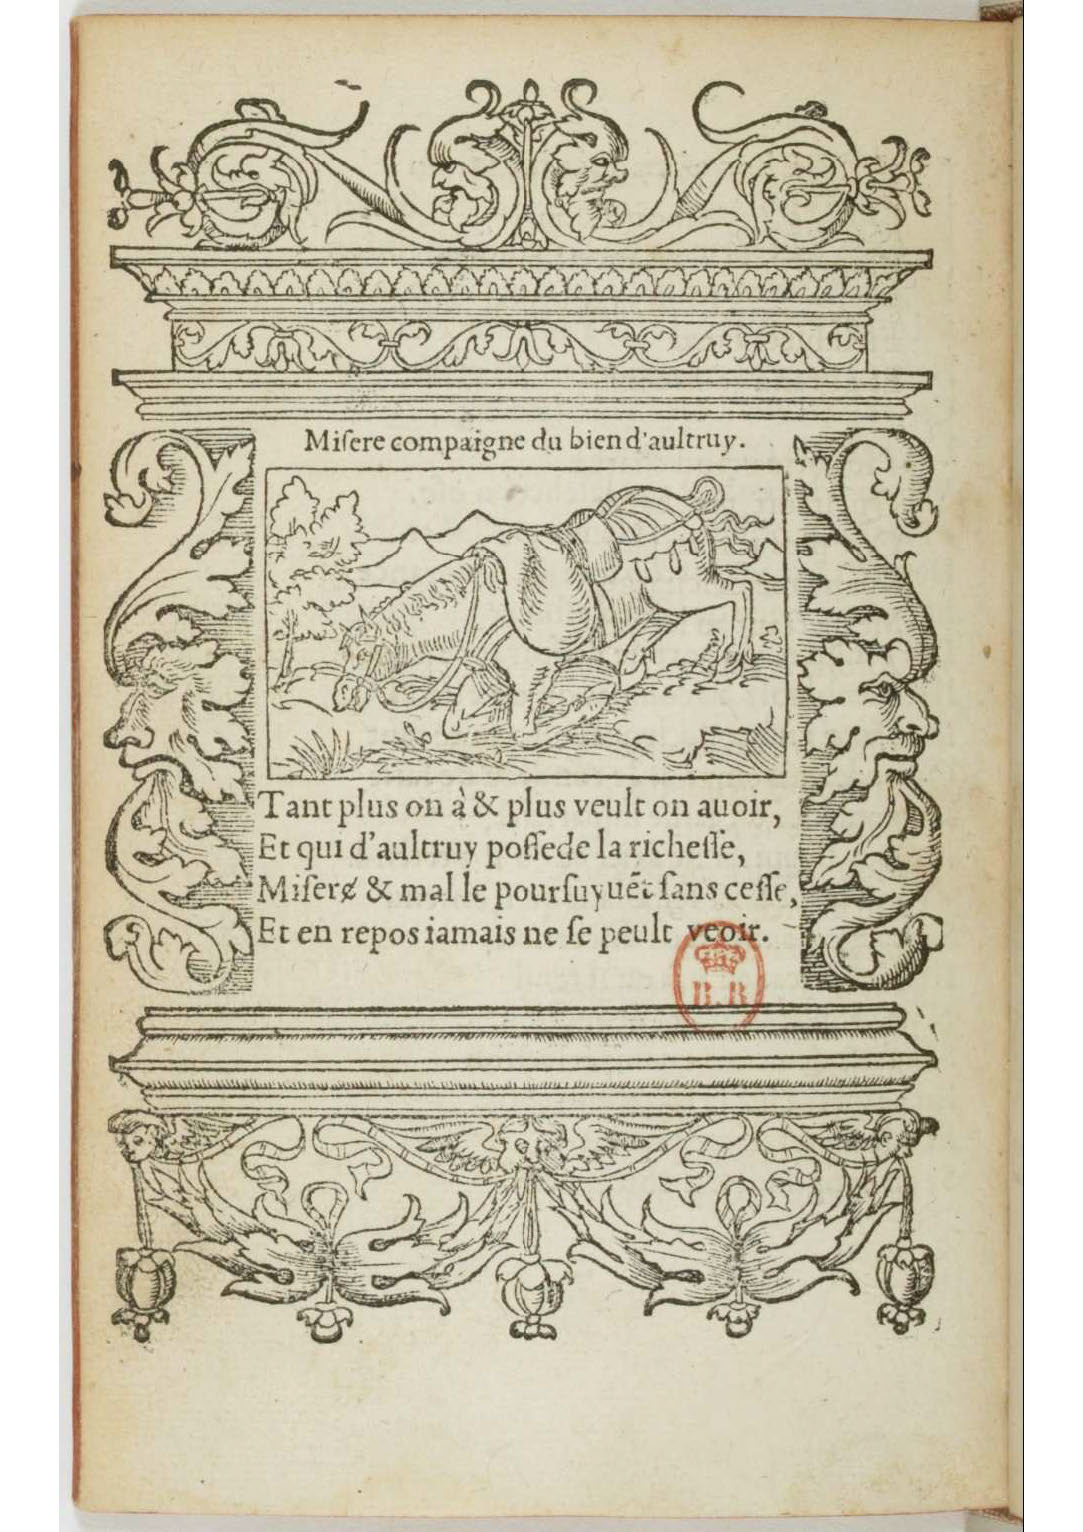 Miſere compaigne du bien d'aultruy.
Tant plus on à & plus veult on auoir,
Et qui d'aultruy poſſede la richeſſe,
Miſerɇ & mal le pourſuyuẽt ſans ceſſe,
Et en repos iamais ne ſe peult veoir.
B.R